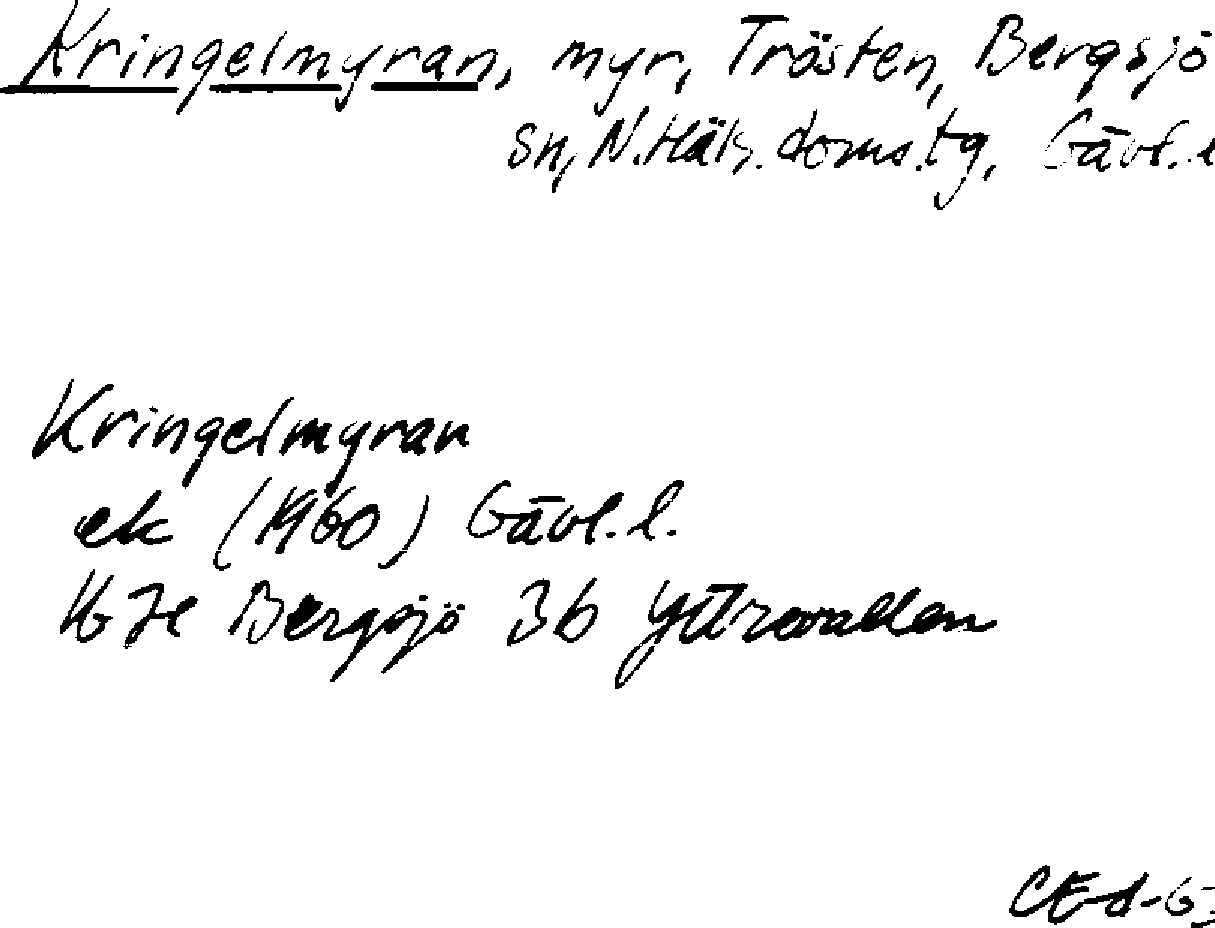 Kringelmyran, myr, Trösten, Bergsjö
sn, N. Häls. doms. tg, Gävl. l
Kringelmyran
ek (1960) Gävl. l.
16 H Bergsjö 3b Yttrevallen
CEd-63